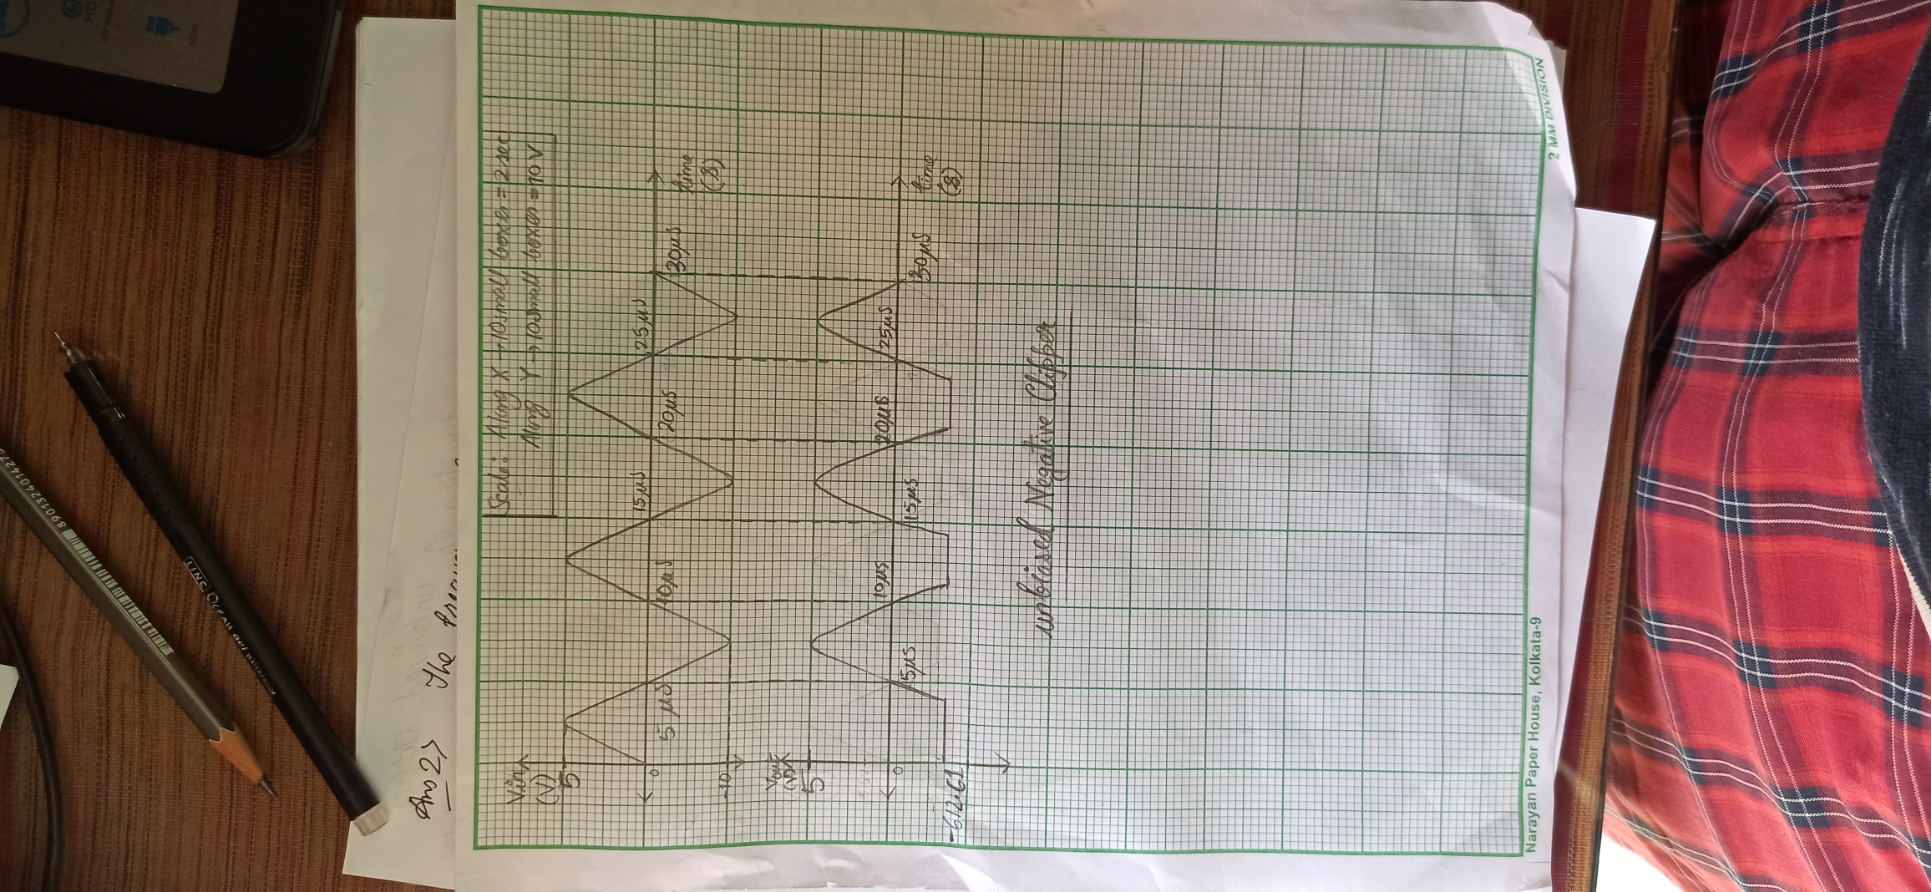 8901324014273
LINC Ocean Gel
HD
HDMI
Ans 2> The
Scale: Along X → 10 small boxes = 2 sec
Along Y → 10 small boxes = 10 V
Vin
(V)
5
0
-10
5 μs
10μs
15μs
20μs
25μs
30μs
time
(s)
Vout
(V)
5
0
-612.61
5μs
10μs
15μs
20μs
25μs
30μs
time
(s)
unbiased Negative Clipper
Narayan Paper House, Kolkata-9
2 MM DIVISION